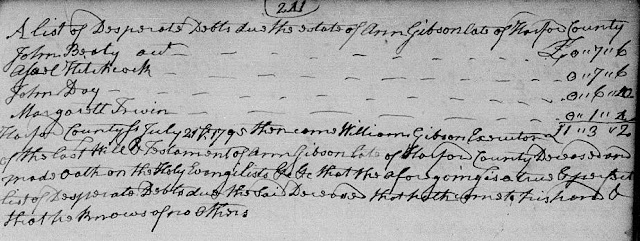 241
A list of Desperate Debts due the estate of Ann Gibson late of Harford County
John Bealy act - - - - - - £0"7"6
Asael Hitchcock - - - - - - 0"7"6
John Day - - - - - - 0"6"
Margarett Irwin - - - - - - 0"1"4
Harford County ss July 21st 1795 then came William Gibson Executor £1"3"2
of the last Will & Testament of Ann Gibson late of Harford County Deceased and
made Oath on the Holy Evangelists &c &c that the aforegoing is a true & perfect
list of Desperate Debts due the said Deceased that hath come to his hand &
that he knows of no others